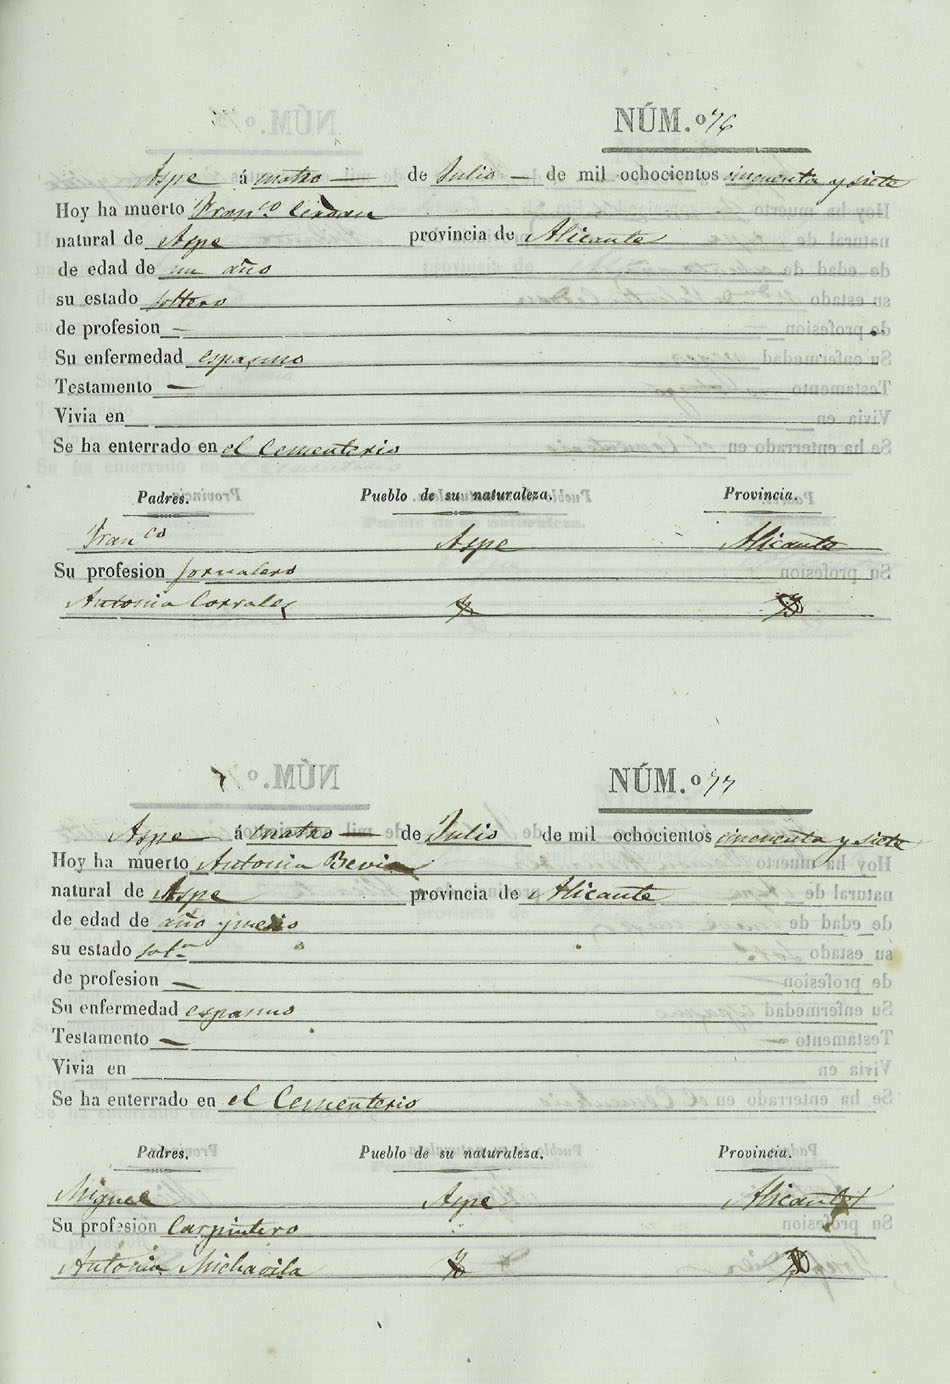 NÚM.º 76
Aspe á cuatro de Julio de mil ochocientos cincuenta y siete
Hoy ha muerto Franco Cerdan
natural de Aspe provincia de Alicante
de edad de un año
su estado soltero
de profesion —
Su enfermedad espasmo
Testamento —
Vivia en
Se ha enterrado en el Cementerio
Padres. Pueblo de su naturaleza. Provincia.
Franco Aspe Alicante
Su profesion jornalero
Antonia Corrales
NÚM.º 77
Aspe á cuatro de Julio de mil ochocientos cincuenta y siete
Hoy ha muerto Antonia Bevia
natural de Aspe provincia de Alicante
de edad de año y medio
su estado solª
de profesion —
Su enfermedad espasmo
Testamento —
Vivia en
Se ha enterrado en el Cementerio
Padres. Pueblo de su naturaleza. Provincia.
Miguel Aspe Alicante
Su profesion Carpintero
Antonia Michavila